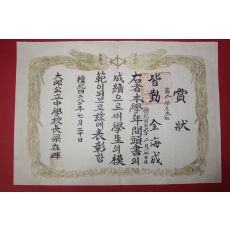 賞狀
皆勤
金海成
右者本學年間頭書의
成績으로써學生의模
範이됨으로玆에表彰함
檀紀四二八三年七月二十日
大邱公立中學校長